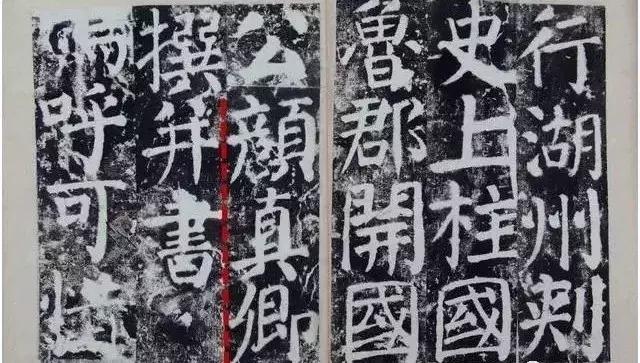 行湖州刺
史上柱國
魯郡開國
公顔真卿
撰并書
呼可